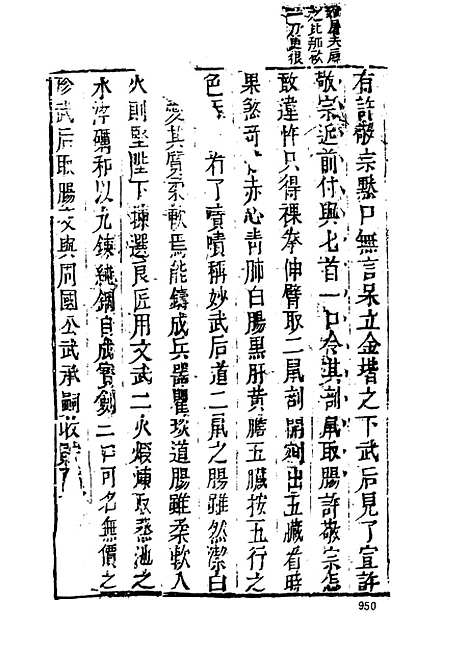 屠夫屠
之比部欲
一刀更狠
有許敬宗懸口無言呆立金堦之下武后見了宣許
敬宗近前付與匕首一口令其剖鼠取腸許敬宗怎
敢違忤只得裸拳伸臂取二鼠剖開剜出五臟看時
果然奇 赤心青肺白腸黑肝黃膽五臟按五行之
色 看了嘖嘖稱妙武后道二鼠之腸雖然潔白
其質柔軟焉能鑄成兵器瞿琰道腸雖柔軟入
火則堅陛下揀選良匠用文武二火煅煉取蒸池之
水淬礪和以九鍊純鋼自成寶劍二口可名無價之
珍武后取腸交與周國公武承嗣收貯了
950